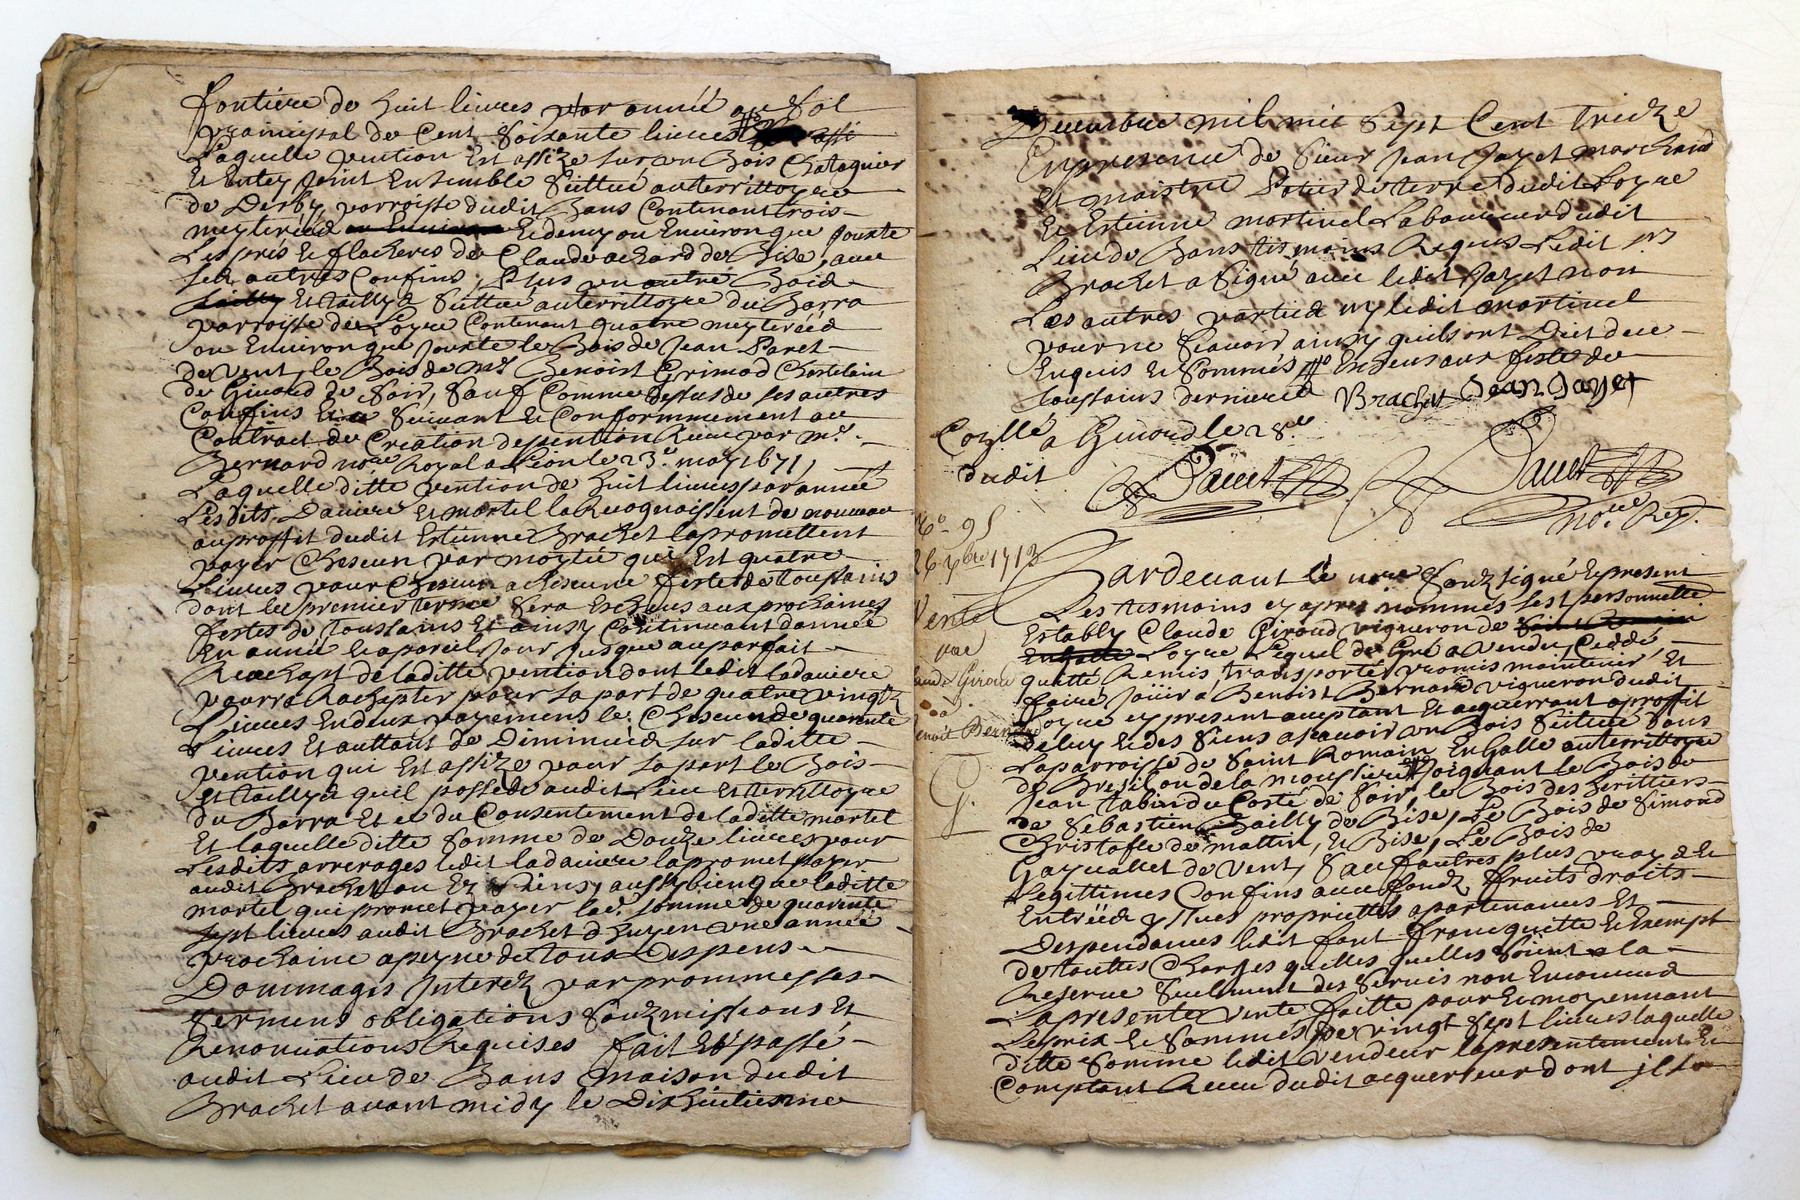 fontiere de huit livres par année au sol
principal de Cent Soixante livres
Laquelle pention Est assize sur un Bois Chataquier
Et Entey joint Ensemble Sittué au territtoyre
de Derby parroisse dudit Bans Contenant trois
meyterées Et demy ou Environ que jouxte
Les prés et flacheres de Claude achard de Bise, avec
ses autres Confins, Plus un autre Bois
Et taillys Sittué au territtoyre du Barra
parroisse de Loyre Contenant quatre meyterééd
ou Environ que jouxte le Bois de Jean Paret
de Vent, le Bois de Mr. Benoist Grimod Chatelain
de Givord de Soir, Sauf Comme dessus de ses autres
Confins Suivant et Conformmement au
Contract de Création de pention Receu par Mr.
Bernard nore. Royal a Lion le 23e. may 1671,
Laquelle ditte pention de huit livres par année
Lesdits Daniere et martel la Recognoissent de nouveau
au proffit dudit Estienne Brachet la promettent
payer Chescun par moytié qui Est quatre
Livres pour Chescun a chescune feste de Toussains
dont le premier terme Sera Escheus aux prochaines
festes de Toussains Et ainsy Continuant d'année
En année Et a pareil jour jusque au parfait
Rachapt de laditte pention dont ledit ladaniere
pourra Rachepter pour sa part de quatre vingtz
Livres En deux payemens le Chescun de quarente
Livres Et auttant de Diminué sur laditte
pention qui Est assize pour sa part le Bois
Et taillys quil possede audit Lieu Et territtoyre
du Barra Et ce du Consentement de laditte martel
Et laquelle ditte Somme de Douze livres pour
Lesdits arrerages ledit ladaniere la promet payer
audit Brachet ou Ez Siens, aussy bien que laditte
martel qui promet payer lad. somme de quarente
sept livres audit Brachet d'huy en une année
prochaine a peyne de tous Despens
Dommages Interez par prommesses
Sermens obligations Soubzmissions Et
Renonciations Requises fait Et passé
audit Lieu de Bans maison dudit
Brachet avant midy le Dix huitiesme
Decembre mil Sept Cent Treize
En presence de Sieur Jean Jayet marchand
Et maistre Potier de terre dudit Loyre
Et Estienne martinel Laboureur dudit
Lieu de Bans tesmoins Requis Ledit
Brachet a Signé avec ledit Jayet non
Les autres parties ny ledit martinel
pour ne Scavoir ainsy quils ont Dit de ce
Enquis Et Sommés Escheus aux feste de
Toussains derniere Brachet Jean Jayet
Conllé a Givord le 28e
dudit
Pauet Pauet
nore. Roy.
No. 95
26 xbre 1713
Vente
par
Claude Giroud
a
Benoit Bernard
G.
Pardevant le nore Soubzsigné Et present
Les tesmoins cy apres nommés sest personnelle
Estably Claude Giroud vigneron de
Loyre Lequel de Gré a Vendu, Ceddé
quitté Remis, transporté, promis maintenir, Et
faire joüir a Benoist Bernard vigneron dudit
Loyre cy present aceptant Et acquerrant a proffit
de luy Et des Siens a Scavoir un Bois Scittué dans
La parroisse de Saint Romain En Galle au territtoyre
de Bresil ou de la moussiere joignant le Bois de
Jean tabard du Costé de Soir, le Bois des heritiers
de Sebastien Bailly de Bise, Le Bois de Simond
Christofle de mattin, Et Bise, Le Bois de
Gayvallet de Vent, Sauf autres plus vray Et
Legittimes Confins avec fondz, fruits droits
Entrééd yssues proprietés apartenances Et
Despendances ledit font franc quitte Et Exempt
de touttes Charges quelles quelles Soint a la
Reserve Seulement des Servis non Encourus
La presente vente faitte pour Et moyennant
Le prix Et Somme de vingt Sept livres laquelle
ditte Somme ledit vendeur la presentement Et
Comptant Receu dudit acquerreur dont il